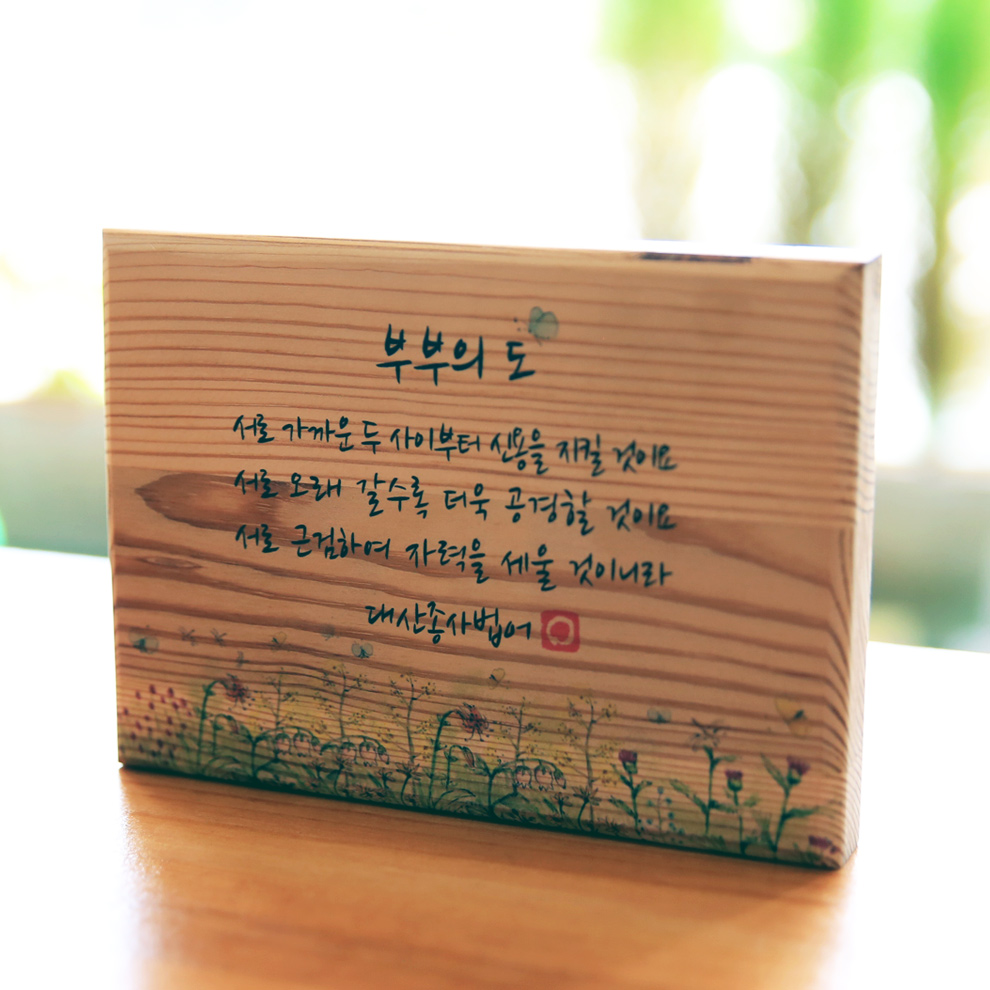 부부의 도
서로 가까운 두 사이부터 신용을 지킬 것이요
서로 오래 갈수록 더욱 공경할 것이요
서로 근검하여 자력을 세울 것이니라
대산종사법어